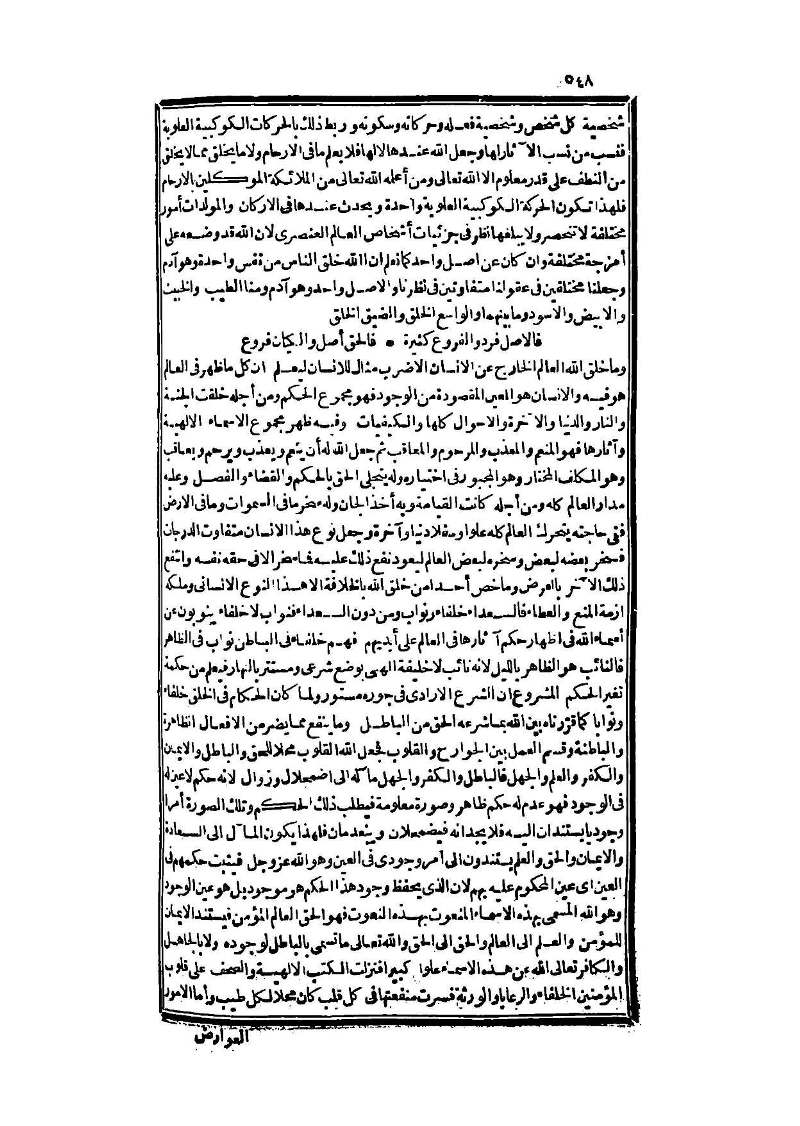 ٥٤٨
شخصية كل شخص وشخصية فعله وحركاته وسكونه وربط ذلك بالحركات الكوكبية العلوية
فنسب من نسب الآثار لها وجعل الله عندها لا لها فلا يعلم ما فى الارحام ولا ما يخلق مما لا يخلق
من النطف على قدر معلوم الا الله تعالى ومن أعلمه الله تعالى من الملائكة الموكلين بالارحام
فلهذا تكون الحركة الكوكبية العلوية واحدة ويحدث عندها فى الاركان والمولدات أمور
مختلفة لا تنحصر ولا يبلغها نظر فى جزئيات أشخاص العالم العنصرى لان الله قد وضعه على
أمزجة مختلفة وان كان عن اصل واحد كما نعلم ان الله خلق الناس من نفس واحدة وهو آدم
وجعلنا مختلفين فى عقولنا متفاوتين فى نظرنا والاصل واحد وهو آدم ومنا الطيب والخبيث
والابيض والاسود وما بينهما والواسع الخلق والضيق الخلق
فالاصل فرد والفروع كثيرة * فالحق أصل والكيان فروع
وما خلق الله العالم الخارج عن الانسان الا ضرب مثال للانسان ليعلم ان كل ما ظهر فى العالم
هو فيه والانسان هو العين المقصودة من الوجود فهو مجموع الحكم ومن أجله خلقت الجنة
والنار والدنيا والآخرة والاحوال كلها والكيفيات وفيه ظهر مجموع الاسماء الالهية
وآثارها فهو المنعم والمعذب والمرحوم والمعاقب ثم جعل الله له أن ينعم ويعذب ويرحم ويعاقب
وهو المكلف المختار وهو المجبور فى اختياره وله يتجلى الحق بالحكم والقضاء والفصل وعليه
مدار العالم كله ومن أجله كانت القيامة وبه أخذ الجان وله سخر ما فى السموات وما فى الارض
ففى حاجته يتحرك العالم كله علوا وسفلا دنيا وآخرة وجعل نوع هذا الانسان متفاوت الدرجات
فسخر بعضه لبعض وسخره لبعض العالم ليعود نفع ذلك عليه فما سخر الا فى حق نفسه وانتفع
ذلك الآخر بالعرض وما خص أحدا من خلق الله بالخلافة الا هذا النوع الانسانى وملكه
ازمة المنع والعطاء فالسعداء خلفاء ونواب ومن دون السعداء فنواب لا خلفاء ينوبون عن
أسماء الله فى اظهار حكم آثارها فى العالم على أيديهم فهم خلفاء فى الباطن نواب فى الظاهر
فالنائب هو الظاهر بالليل لانه نائب لا خليفة الهى بوضع شرعى ومستتر بالنهار فيعلم من حكمة
تغير الحكم المشروع ان الشرع الارادى فى جوره مستور ولما كان الحكام فى الخلق خلفاء
ونوابا كما قررناه بين الله بما شرعه الحق من الباطل وما ينفع مما يضر من الافعال الظاهرة
والباطنة وقسم العمل بين الجوارح والقلوب فجعل الله القلوب محلا للحق والباطل والايمان
والكفر والعلم والجهل فالباطل والكفر والجهل مآله الى اضمحلال وزوال لانه حكم لا عين له
فى الوجود فهو عدم له حكم ظاهر وصورة معلومة فيطلب ذلك الحكم وتلك الصورة أمرا
وجوديا يستندان اليه فلا يجدانه فيضمحلان وينعدمان فلهذا يكون المآل الى السعادة
والايمان والحق والعلم يستندون الى أمر وجودى فى العين وهو الله عز وجل فيثبت حكمهم فى
العين اى عين المحكوم عليه بهم لان الذى يحفظ وجود هذا الحكم هو موجود بل هو عين الوجود
وهو الله المسمى بهذه الاسماء المنعوت بهذه النعوت فهو الحق العالم المؤمن فيستند الايمان
للمؤمن والعلم الى العالم والحق الى الحق والله تعالى ما تسمى بالباطل لوجوده ولا بالجاهل
والكافر تعالى الله عن هذه الاسماء علوا كبيرا فنزلت الكتب الالهية والصحف على قلوب
المؤمنين الخلفاء والرعايا والورثة فسرت منفعتها فى كل قلب كان محلا لكل طيب وأما الامور
العوارض